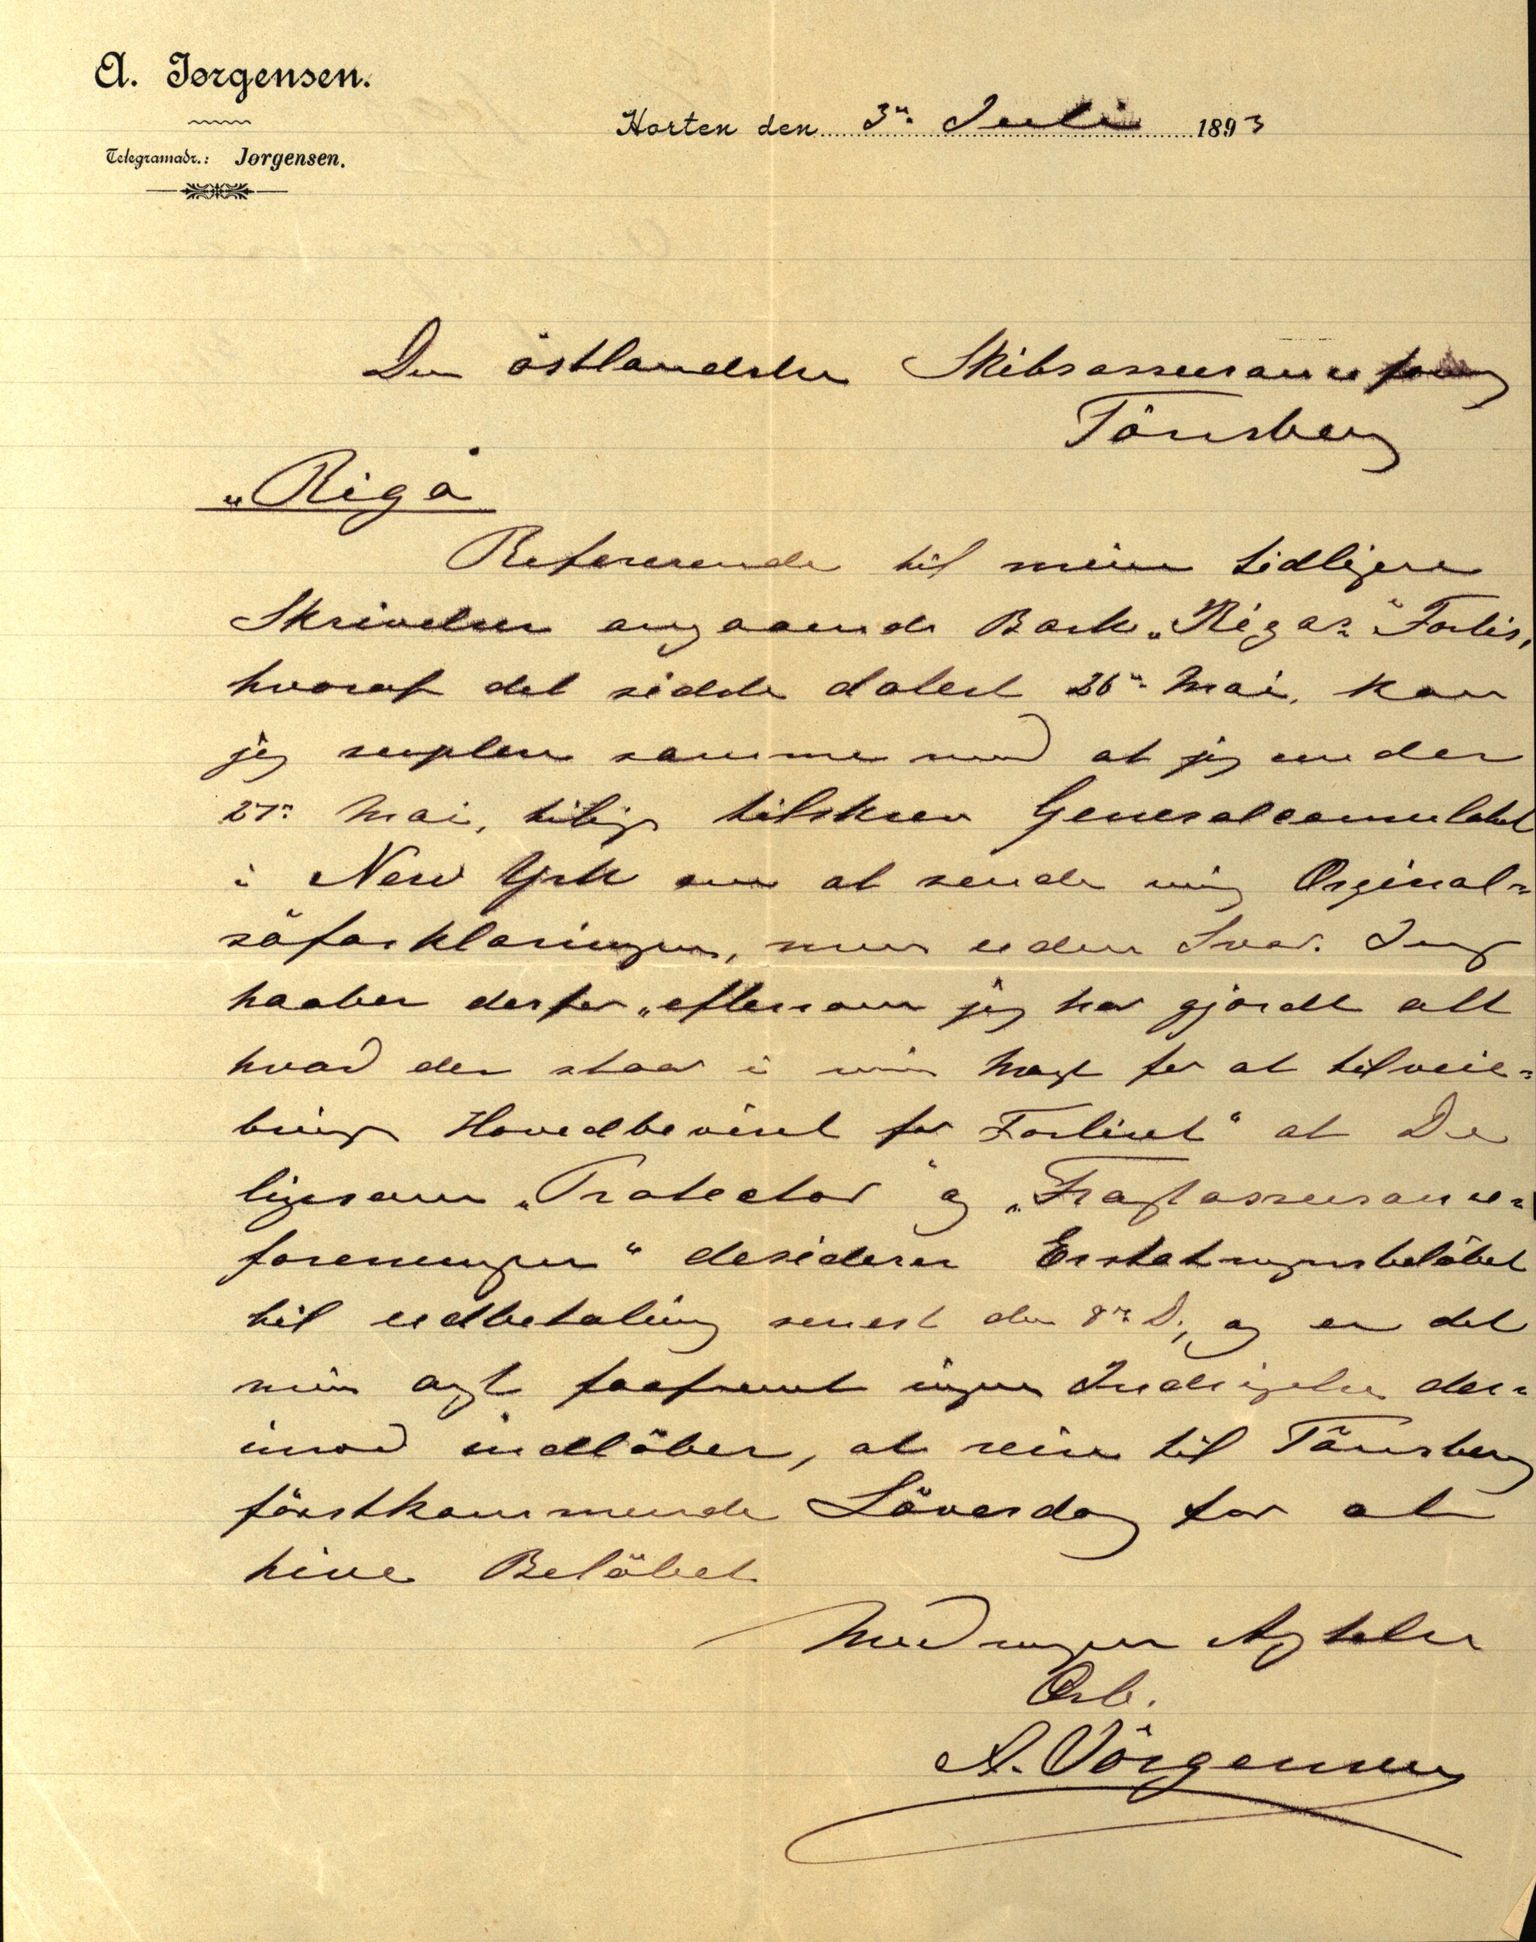 A. Jørgensen.
Telegramadr.: Jørgensen.
Horten den 3die Juli 1893
Den östlandske Skibsassuranceforng
Tönsberg
„Riga"
Refererende til mine tidligere
Skrivelser angaaende Bark „Rigas" Forlis,
hvoraf det sidste datert 26de Mai, kan
jeg suplere samme med at jeg under
27de Mai, tillige tilskrev Generalconsulatet
i New York om at sende mig Orginal-
söforklaringen, men uden Svar. Jeg
haaber derfor „eftersom jeg har gjordt alt
hvad der staar i min Magt for at tilveie-
bringe Hovedbeviset for Forliset" at De
ligesom „Protector" og „Fragtassurance-
foreningen" desiderer Erstatningsbelöbet
til udbetaling senest den 8de D., og er det
min agt saafremt ingen Indsigelse der-
imod indlöber, at reise til Tönsberg
förstkommende Löverdag for at
hive Belöbet
Med megen Agtelse
Erb.
A. Jörgensen